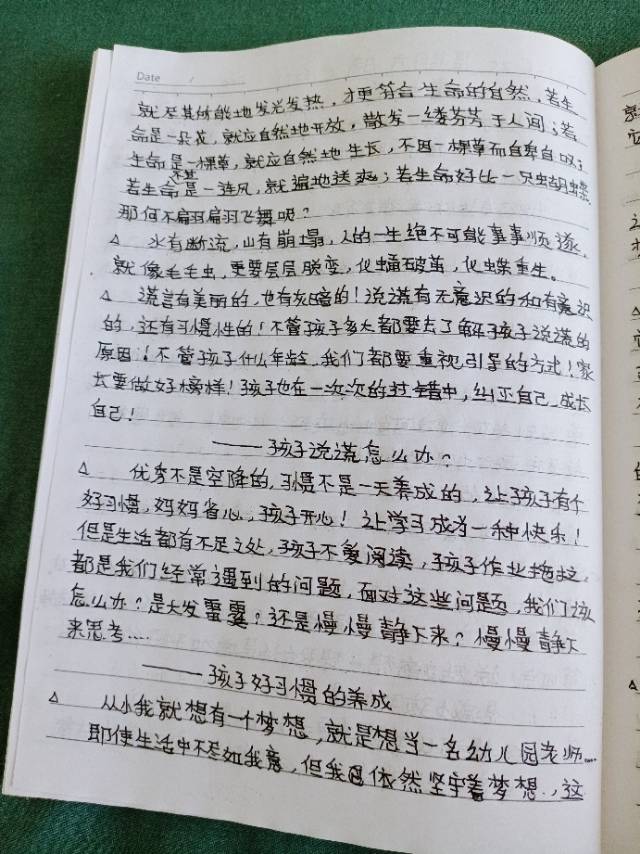 Date
就尽其所能地发光发热，才更符合生命的自然，若生
命是一朵花，就应自然地开放，散发一缕芬芳于人间；若
生命是一棵草，就应自然地生长，不因一棵草而自卑自叹；
若生命是一连风，就遍地送爽；若生命好比一只蝴蝶
那何不扁羽扁羽飞舞呢？
△ 水有断流，山有崩塌，人的一生绝不可能事事顺遂，
就像毛毛虫，更要层层脱变，化蛹破茧，化蝶重生。
△ 谎言有美丽的，也有灰暗的！说谎有无意识的和有意识
的，还有习惯性的！不管孩子多大都要去了解孩子说谎的
原因！不管孩子什么年龄，我们都要重视引导的方式！家
长要做好榜样！孩子也在一次次的过错中，纠正自己，成长
自己！
——孩子说谎怎么办？
△ 优秀不是空降的，习惯不是一天养成的，让孩子有个
好习惯，妈妈省心，孩子开心！让学习成为一种快乐！
但是生活都有不足之处，孩子不爱阅读，孩子作业拖拉，
都是我们经常遇到的问题，面对这些问题，我们该
怎么办？是大发雷霆？还是慢慢静下来？慢慢静下
来思考....
——孩子好习惯的养成
△ 从小我就想有一个梦想，就是想当一名幼儿园老师....
即使生活中不尽如我意，但我依然坚守着梦想.，这